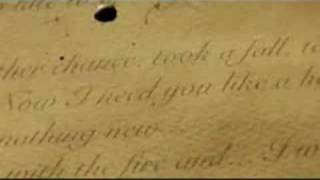 ther chance, took a fall, to
Now I need you like a he
nothing new...
with the fire and... I w